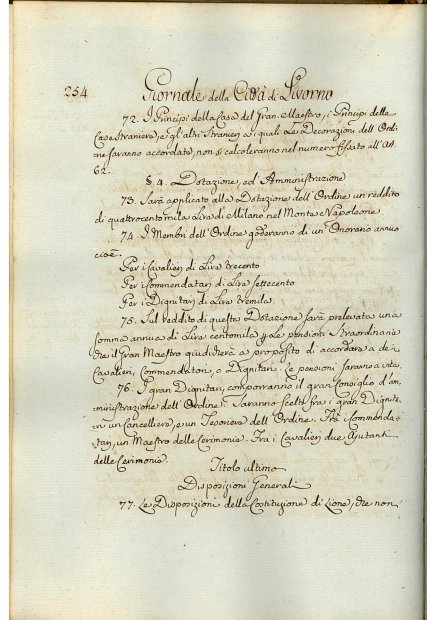 254 Giornale della Città di Livorno
72. I Principi della Casa del Gran Maestro, i Principi delle
Case Straniere, e gl'altri Stranieri a' quali Le Decorazioni dell'Ordi
ne saranno accordate, non si calcoleranno nel numero fissato all'Art
62.
§ 4. Dotazione, ed Amministrazione
73. Sarà applicato alla Dotazione dell'Ordine un reddito
di quattrocentomila Lire di Milano nel Monte Napoleone
74. I Membri dell'Ordine goderanno di un' Onorario annuo
cioè.
Per i Cavalieri di Lire trecento
Per i Commendatarj di Lire settecento
Per i Dignitarj di Lire tremila
75. Sul reddito di questa Dotazione sarà prelevata una
somma annua di Lire centomila per Le pensioni straordinarie
che il Gran Maestro giudicherà a proposito di accordare a dei
Cavalieri, Commendatori, o Dignitarj. Le pensioni saranno a vita.
76. I gran Dignitarj comporranno il gran Consiglio d'am,
ministrazione dell'Ordine. Saranno Scelti fra i gran Dignita,
rj un Cancelliere, e un Tesoriere dell'Ordine. Frà i Commenda,
tarj, un Maestro delle Cerimonie. Fra i Cavalieri due Ajutanti
delle Cerimonie
Titolo ultimo
Disposizioni Generali
77. Le Disposizioni della Costituzione di Lione, che non,